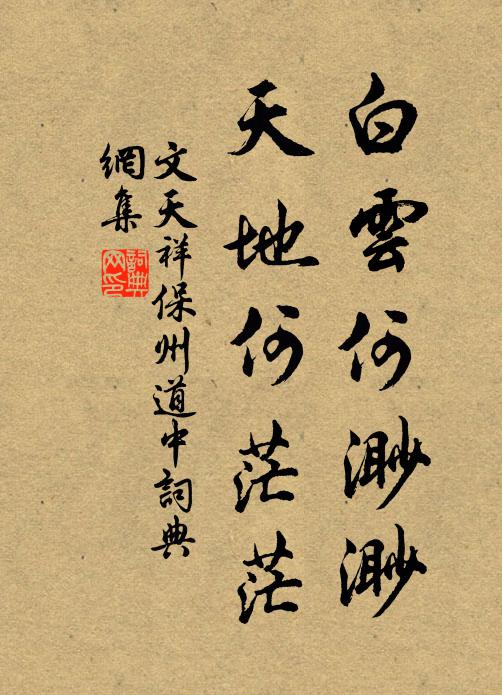 白雲何渺渺
天地何茫茫
文天祥保州道中詞典
網集
詞典
网印